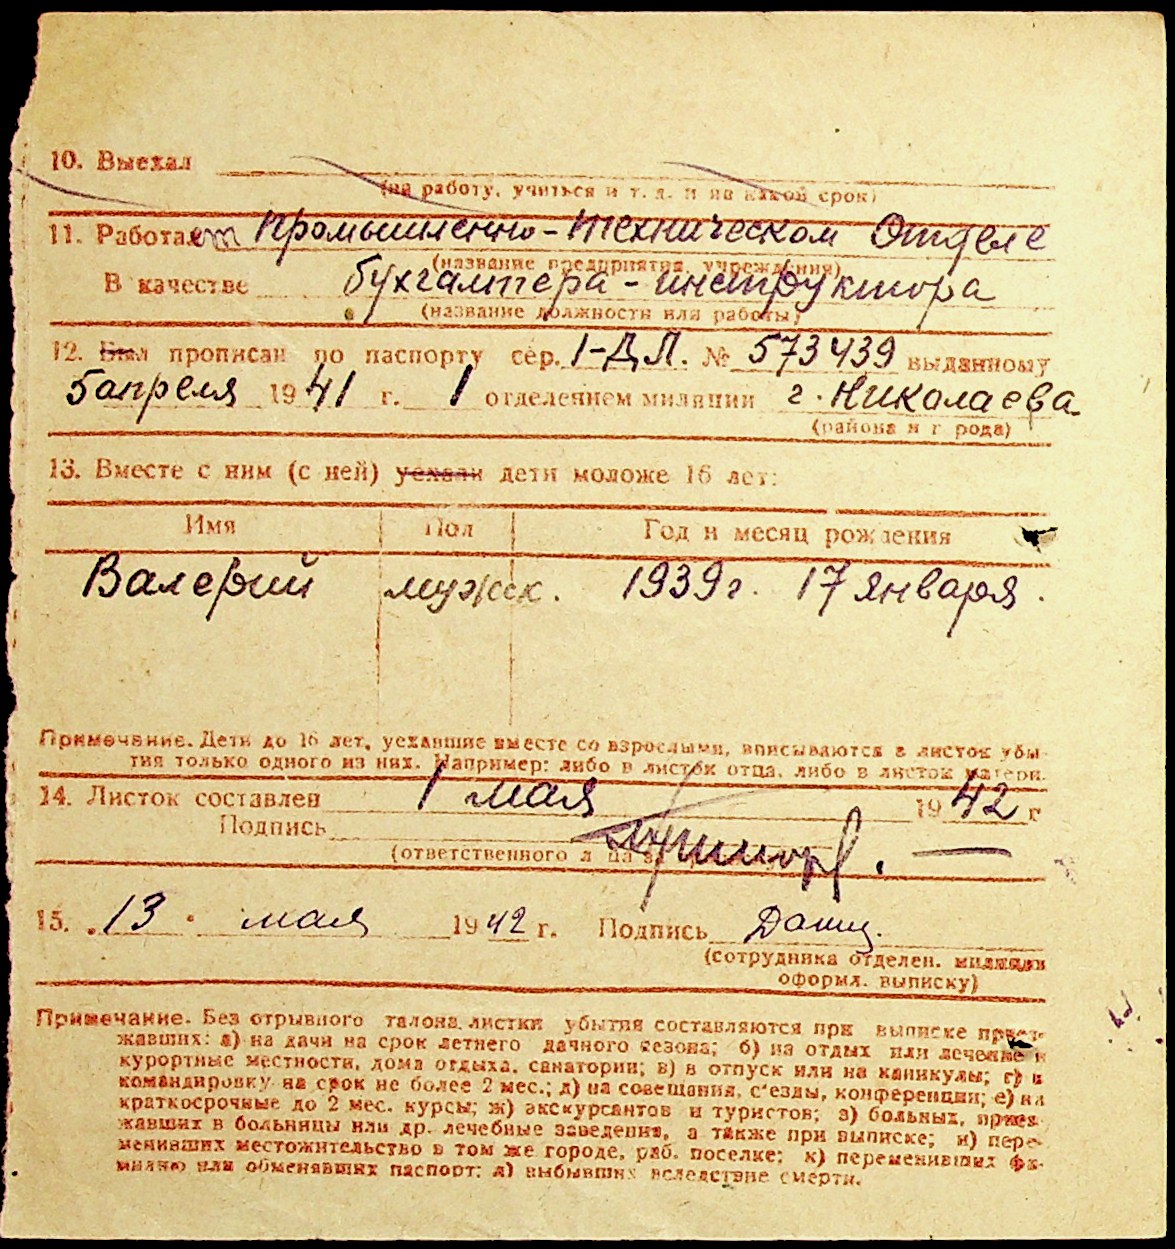 10. Выехал
(на работу, учиться и т. д. и на какой срок)
11. Работает Промышленно-Техническом Отделе
(название предприятия, учреждения)
В качестве бухгалтера-инструктора
(название должности или работы)
12. Был прописан по паспорту сер. 1-ДЛ. № 573439 выданному
5 апреля 1941 г. 1 отделением милиции г. Николаева
(района и города)
13. Вместе с ним (с ней) уехали дети моложе 16 лет:
Имя Пол Год и месяц рождения
Валерий мужск. 1939 г. 17 января.
Примечание. Дети до 16 лет, уехавшие вместе со взрослыми, вписываются в листок убы-
тия только одного из них. Например: либо в листок отца, либо в листок матери.
14. Листок составлен 1 мая 1942 г
Подпись
(ответственного лица за
15. 13 мая 1942 г. Подпись
(сотрудника отделен. милиции
оформл. выписку)
Примечание. Без отрывного талона листки убытия составляются при выписке приез-
жавших: а) на дачи на срок летнего дачного сезона; б) на отдых или лечение в
курортные местности, дома отдыха, санатории; в) в отпуск или на каникулы; г) в
командировку на срок не более 2 мес.; д) на совещания, с'езды, конференции; е) на
краткосрочные до 2 мес. курсы; ж) экскурсантов и туристов; з) больных, приез-
жавших в больницы или др. лечебные заведения, а также при выписке; и) пере-
менивших местожительство в том же городе, раб. поселке; к) переменивших фа-
милию или обменявших паспорт; л) выбывших вследствие смерти.